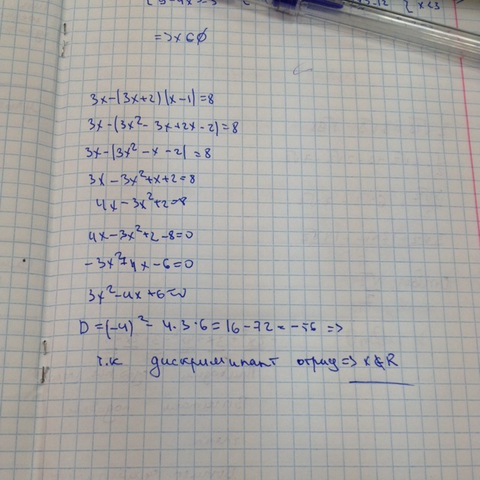 => x ∈ ∅
3x-(3x+2)(x-1)=8
3x-(3x²-3x+2x-2)=8
3x-(3x²-x-2)=8
3x-3x²+x+2=8
4x-3x²+2=8
4x-3x²+2-8=0
-3x²+4x-6=0
3x²-4x+6=0
D=(-4)²-4·3·6=16-72=-56 =>
т.к дискриминант отриц => x ∉ R